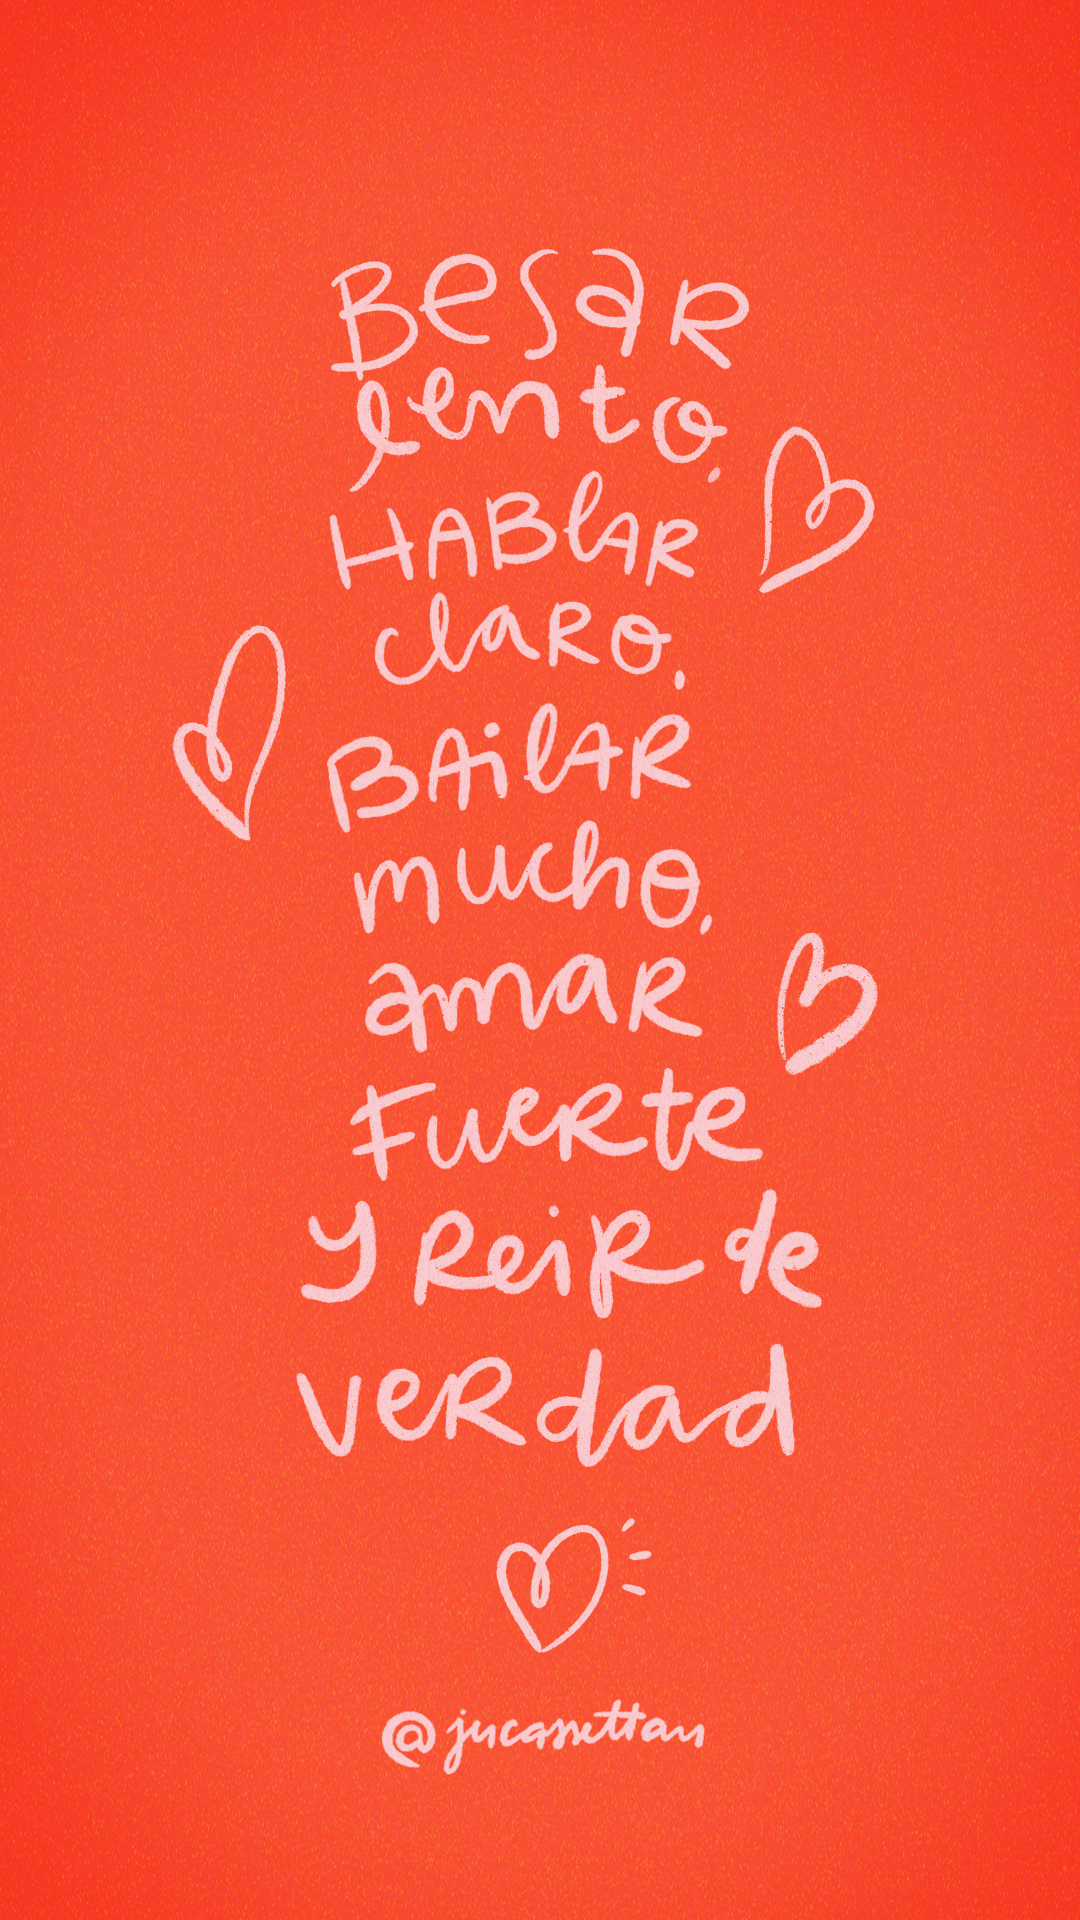 Besar
lento,
HABlAR
claro,
BAilAR
mucho,
amar
Fuerte
y Reir de
verdad
@jucassettari